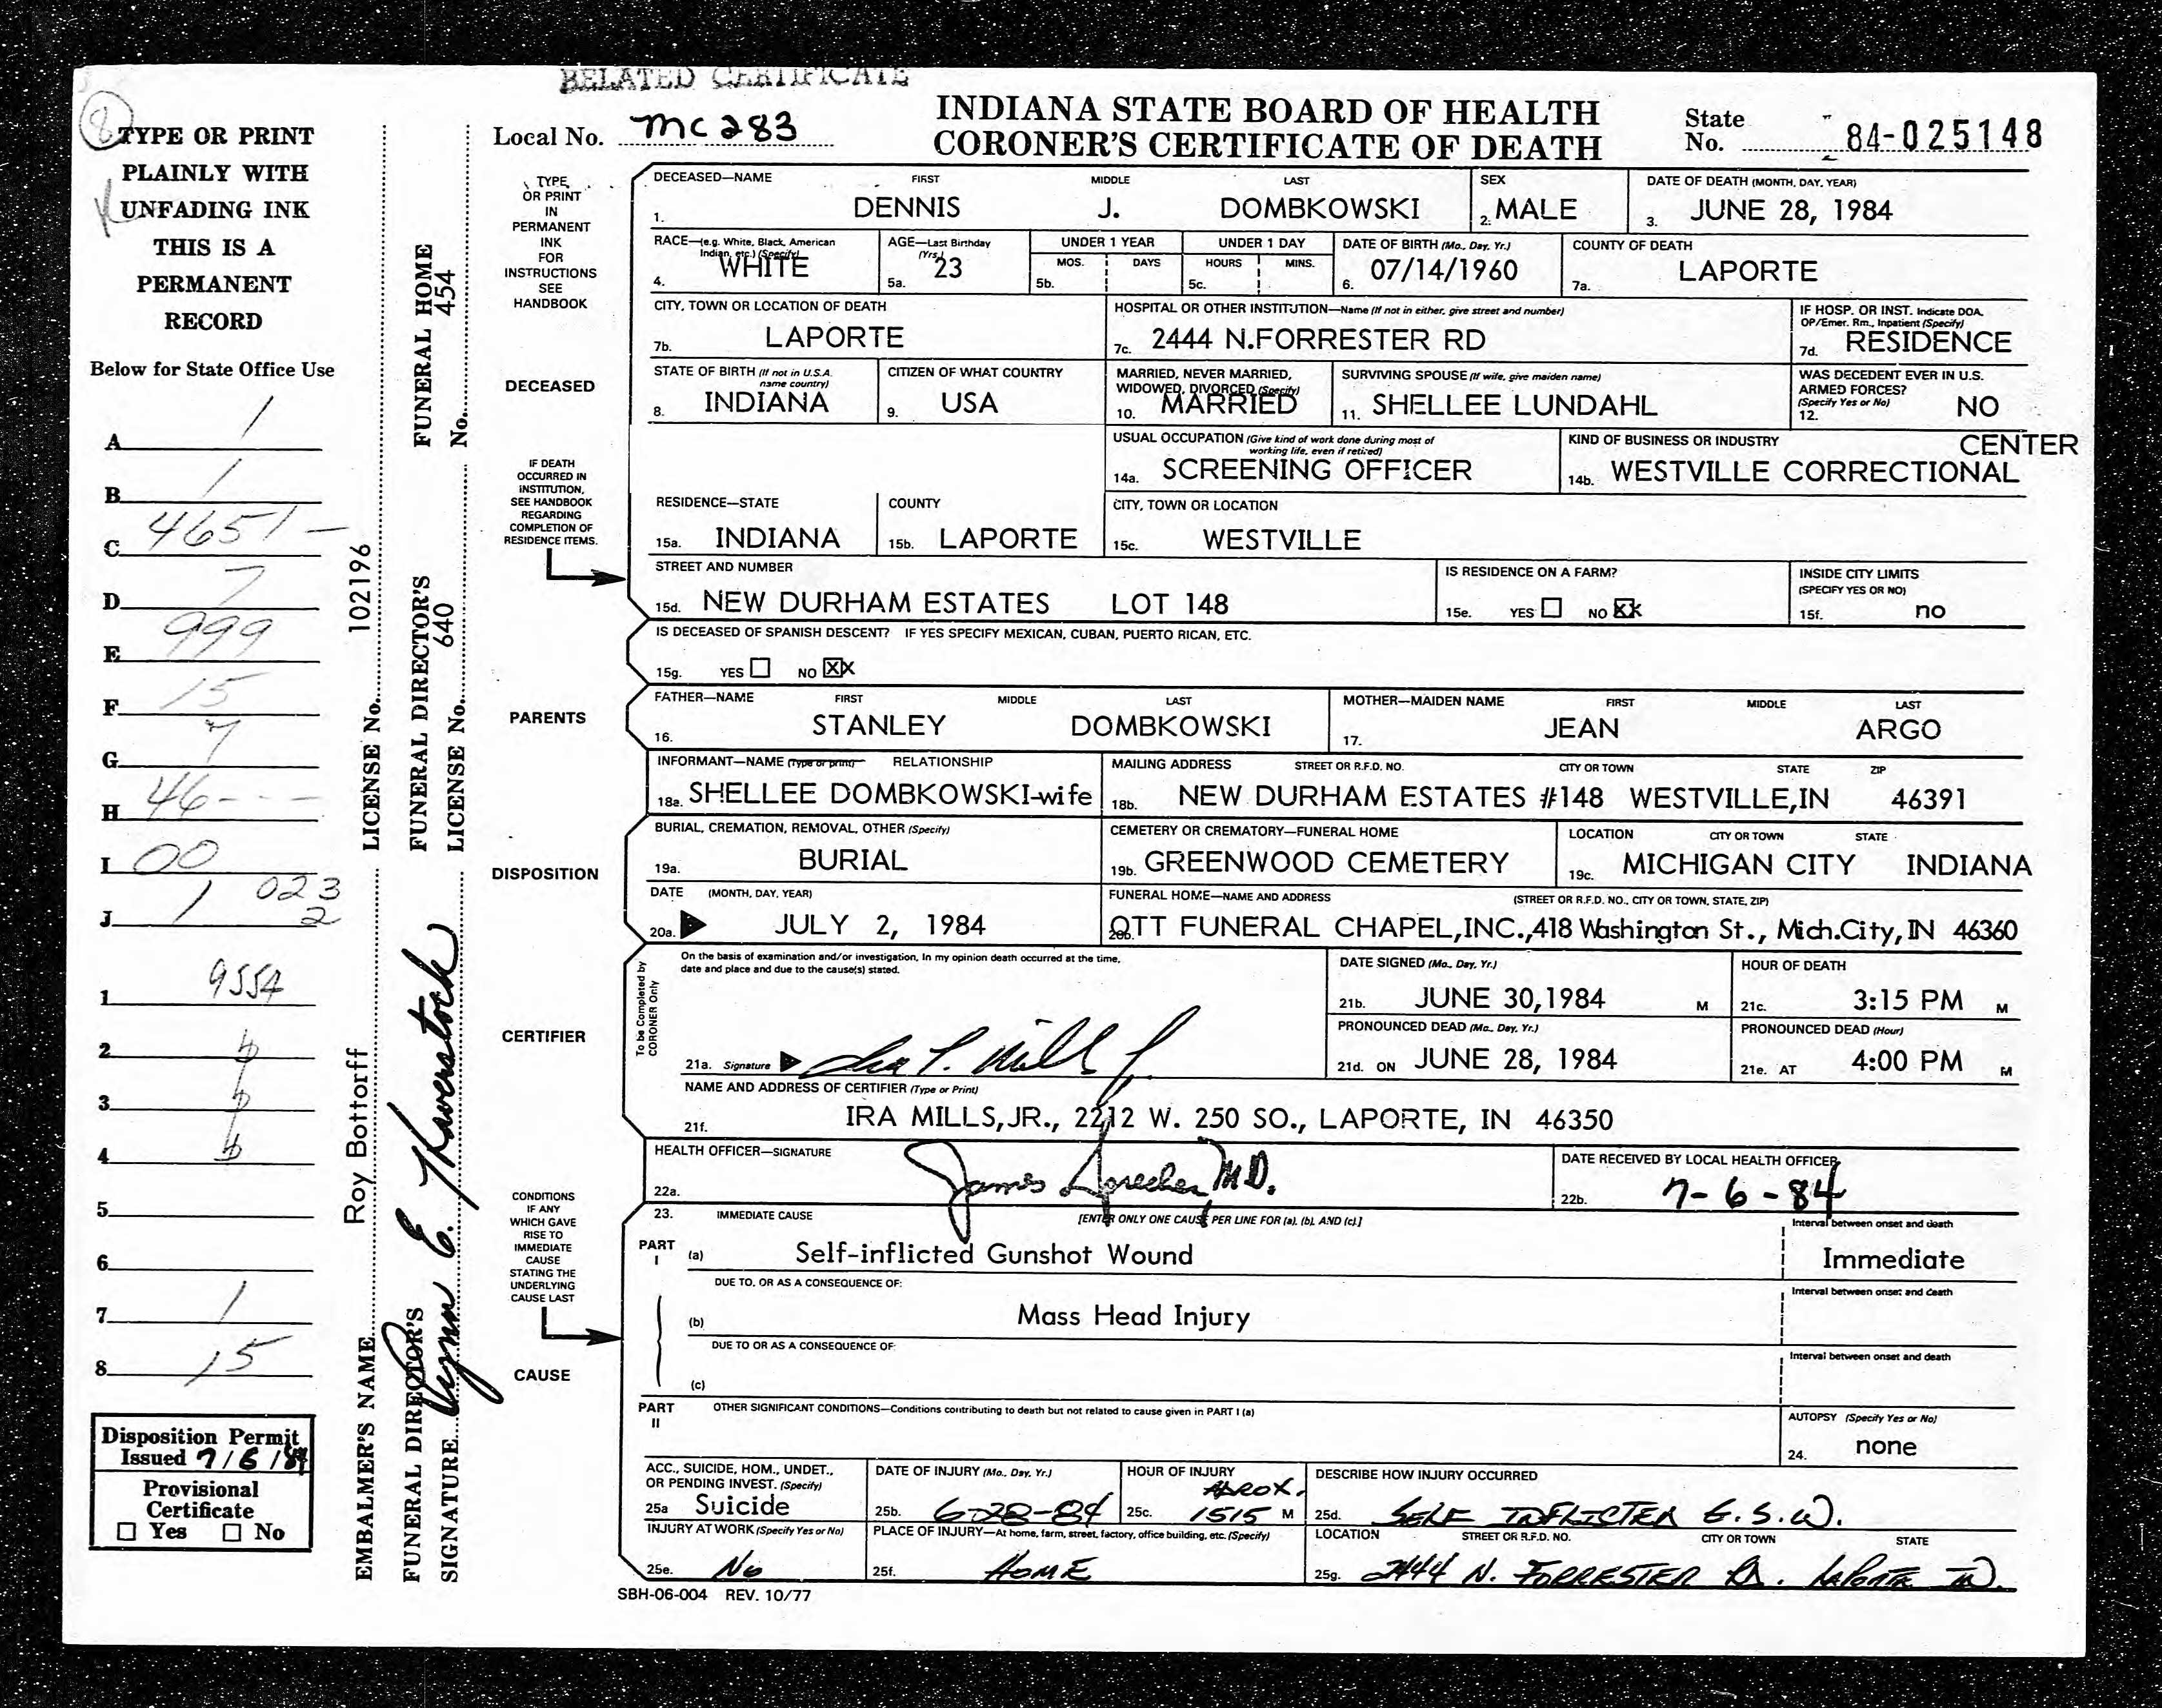 BELATED CERTIFICATE
8
TYPE OR PRINT
PLAINLY WITH
UNFADING INK
THIS IS A
PERMANENT
RECORD
Below for State Office Use
A 1
B 1
C 4651 -
D 7
E 999
F 15
G 7
H 46 - - -
I 00
J 1 023
2
1 9554
2
3
4
5
6
7 1
8 15
Disposition Permit
Issued 7/6/84
Provisional
Certificate
☐ Yes ☐ No
EMBALMER'S NAME Roy Bottorff LICENSE No. 102196
FUNERAL DIRECTOR'S FUNERAL DIRECTOR'S FUNERAL HOME
SIGNATURE LICENSE No. 640 No. 454
Local No. MC 283
INDIANA STATE BOARD OF HEALTH
CORONER'S CERTIFICATE OF DEATH
State
No. 84-025148
TYPE
OR PRINT
IN
PERMANENT
INK
FOR
INSTRUCTIONS
SEE
HANDBOOK
DECEASED—NAME FIRST MIDDLE LAST
1. DENNIS J. DOMBKOWSKI
SEX
2. MALE
DATE OF DEATH (MONTH, DAY, YEAR)
3. JUNE 28, 1984
RACE—(e.g. White, Black, American
Indian, etc.) (Specify)
4. WHITE
AGE—Last Birthday
(Yrs.)
5a. 23
UNDER 1 YEAR
MOS. DAYS
5b.
UNDER 1 DAY
HOURS MINS.
5c.
DATE OF BIRTH (Mo., Day, Yr.)
6. 07/14/1960
COUNTY OF DEATH
7a. LAPORTE
CITY, TOWN OR LOCATION OF DEATH
7b. LAPORTE
HOSPITAL OR OTHER INSTITUTION—Name (If not in either, give street and number)
7c. 2444 N.FORRESTER RD
IF HOSP. OR INST. Indicate DOA,
OP/Emer. Rm., Inpatient (Specify)
7d. RESIDENCE
DECEASED
STATE OF BIRTH (If not in U.S.A.
name country)
8. INDIANA
CITIZEN OF WHAT COUNTRY
9. USA
MARRIED, NEVER MARRIED,
WIDOWED, DIVORCED (Specify)
10. MARRIED
SURVIVING SPOUSE (If wife, give maiden name)
11. SHELLEE LUNDAHL
WAS DECEDENT EVER IN U.S.
ARMED FORCES?
(Specify Yes or No)
12. NO
USUAL OCCUPATION (Give kind of work done during most of
working life, even if retired)
14a. SCREENING OFFICER
KIND OF BUSINESS OR INDUSTRY CENTER
14b. WESTVILLE CORRECTIONAL
IF DEATH
OCCURRED IN
INSTITUTION,
SEE HANDBOOK
REGARDING
COMPLETION OF
RESIDENCE ITEMS.
RESIDENCE—STATE
15a. INDIANA
COUNTY
15b. LAPORTE
CITY, TOWN OR LOCATION
15c. WESTVILLE
STREET AND NUMBER
15d. NEW DURHAM ESTATES LOT 148
IS RESIDENCE ON A FARM?
15e. YES ☐ NO XX
INSIDE CITY LIMITS
(SPECIFY YES OR NO)
15f. no
IS DECEASED OF SPANISH DESCENT? IF YES SPECIFY MEXICAN, CUBAN, PUERTO RICAN, ETC.
15g. YES ☐ NO XX
PARENTS
FATHER—NAME FIRST MIDDLE LAST
16. STANLEY DOMBKOWSKI
MOTHER—MAIDEN NAME FIRST MIDDLE LAST
17. JEAN ARGO
INFORMANT—NAME (Type or print) RELATIONSHIP
18a. SHELLEE DOMBKOWSKI-wife
MAILING ADDRESS STREET OR R.F.D. NO. CITY OR TOWN STATE ZIP
18b. NEW DURHAM ESTATES #148 WESTVILLE,IN 46391
DISPOSITION
BURIAL, CREMATION, REMOVAL, OTHER (Specify)
19a. BURIAL
CEMETERY OR CREMATORY—FUNERAL HOME
19b. GREENWOOD CEMETERY
LOCATION CITY OR TOWN STATE
19c. MICHIGAN CITY INDIANA
DATE (MONTH, DAY, YEAR)
20a. JULY 2, 1984
FUNERAL HOME—NAME AND ADDRESS (STREET OR R.F.D. NO., CITY OR TOWN, STATE, ZIP)
20b. OTT FUNERAL CHAPEL,INC.,418 Washington St., Mich.City, IN 46360
CERTIFIER
To be Completed by
CORONER Only
On the basis of examination and/or investigation, In my opinion death occurred at the time,
date and place and due to the cause(s) stated.
21a. Signature
DATE SIGNED (Mo., Day, Yr.)
21b. JUNE 30,1984 M
HOUR OF DEATH
21c. 3:15 PM M
PRONOUNCED DEAD (Mo., Day, Yr.)
21d. ON JUNE 28, 1984
PRONOUNCED DEAD (Hour)
21e. AT 4:00 PM M
NAME AND ADDRESS OF CERTIFIER (Type or Print)
21f. IRA MILLS,JR., 2212 W. 250 SO., LAPORTE, IN 46350
HEALTH OFFICER—SIGNATURE
22a. James Sprecher M.D.
DATE RECEIVED BY LOCAL HEALTH OFFICER
22b. 7-6-84
CONDITIONS
IF ANY
WHICH GAVE
RISE TO
IMMEDIATE
CAUSE
STATING THE
UNDERLYING
CAUSE LAST
CAUSE
23. IMMEDIATE CAUSE [ENTER ONLY ONE CAUSE PER LINE FOR (a), (b), AND (c).]
PART I (a) Self-inflicted Gunshot Wound
Interval between onset and death
Immediate
DUE TO, OR AS A CONSEQUENCE OF:
(b) Mass Head Injury
Interval between onset and death
DUE TO OR AS A CONSEQUENCE OF:
(c)
Interval between onset and death
PART II OTHER SIGNIFICANT CONDITIONS—Conditions contributing to death but not related to cause given in PART I (a)
AUTOPSY (Specify Yes or No)
24. none
ACC., SUICIDE, HOM., UNDET.,
OR PENDING INVEST. (Specify)
25a Suicide
DATE OF INJURY (Mo., Day, Yr.)
25b. 6-28-84
HOUR OF INJURY
APROX.
25c. 1515 M
DESCRIBE HOW INJURY OCCURRED
25d. SELF INFLICTED G.S.W.
INJURY AT WORK (Specify Yes or No)
25e. No
PLACE OF INJURY—At home, farm, street, factory, office building, etc. (Specify)
25f. HOME
LOCATION STREET OR R.F.D. NO. CITY OR TOWN STATE
25g. 2444 N. FORRESTER Rd. LaPorte IN.
SBH-06-004 REV. 10/77